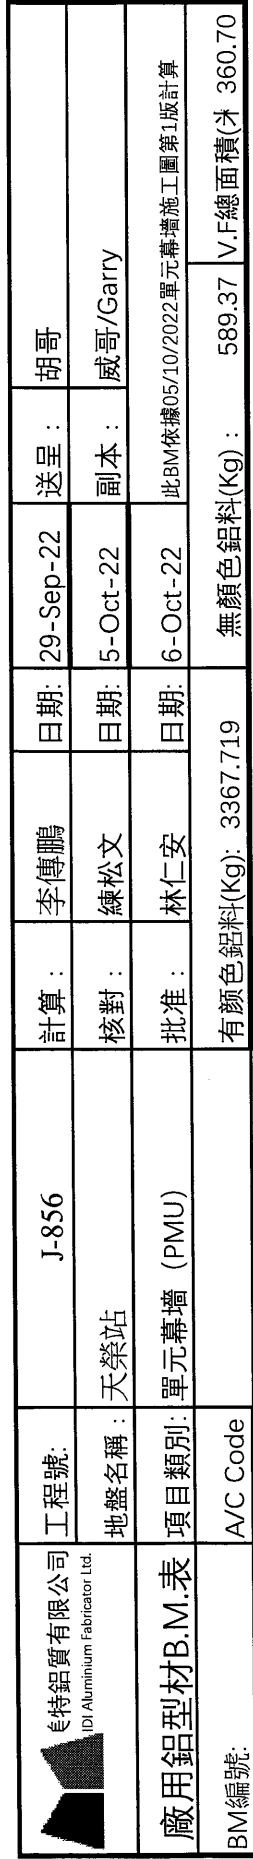 特鋁質有限公司
IDI Aluminium Fabricator Ltd.
工程號: J-856 計算: 李傳鵬 日期: 29-Sep-22 送呈: 胡哥
地盤名稱: 天榮站 核對: 練松文 日期: 5-Oct-22 副本: 威哥/Garry
廠用鋁型材B.M.表 項目類別: 單元幕墻 (PMU) 批准: 林仁安 日期: 6-Oct-22 此BM依據05/10/2022單元幕墻施工圖第1版計算
BM編號: A/C Code 有颜色鋁料(Kg): 3367.719 無顏色鋁料(Kg): 589.37 V.F總面積(米 360.70